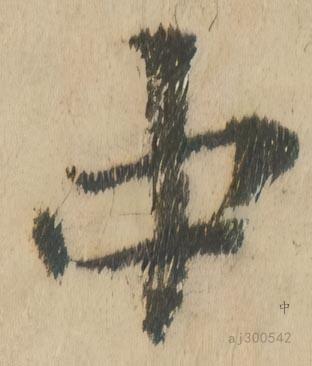 中
中
aj300542